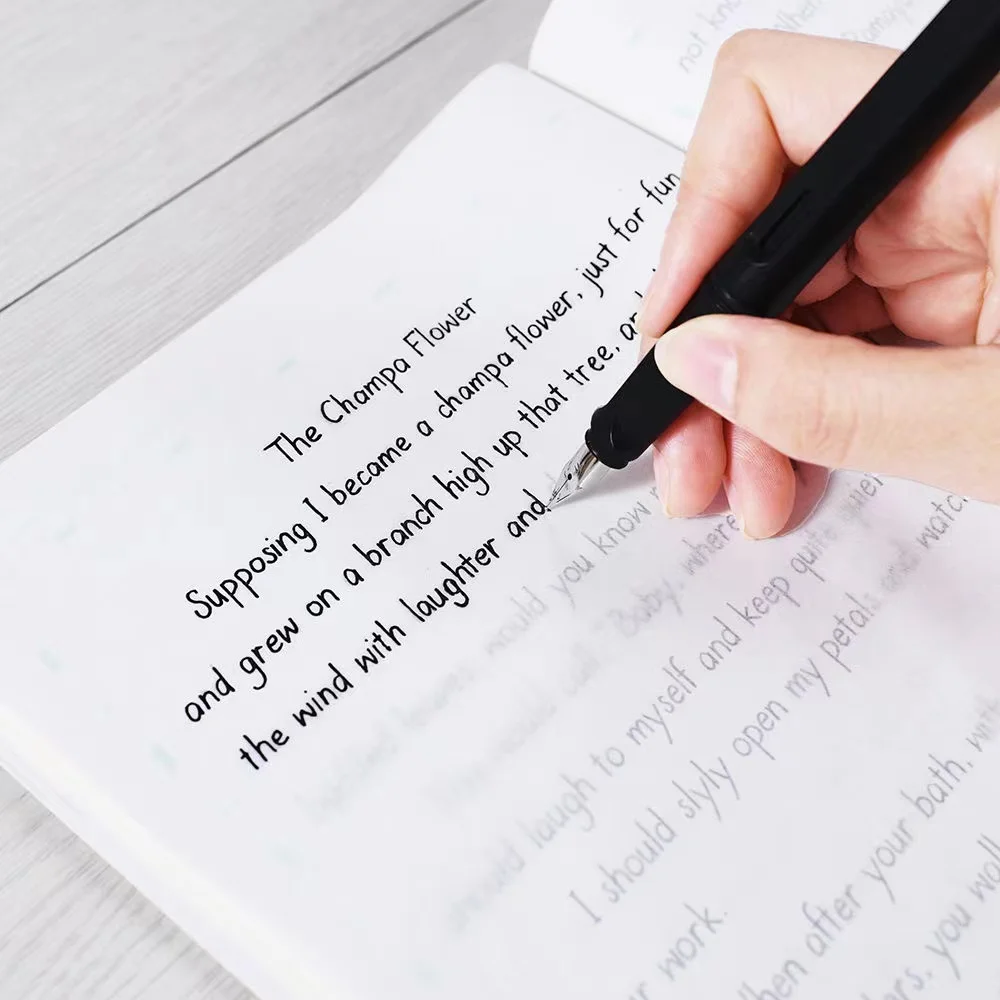 not
The Champa Flower
Supposing I became a champa flower, just for fun
and grew on a branch high up that tree,
the wind with laughter and
would you know
call, "Baby, where
should laugh to myself and keep quite quiet
I should slyly open my petals and watch
work.
hen after your bath, with
you walk